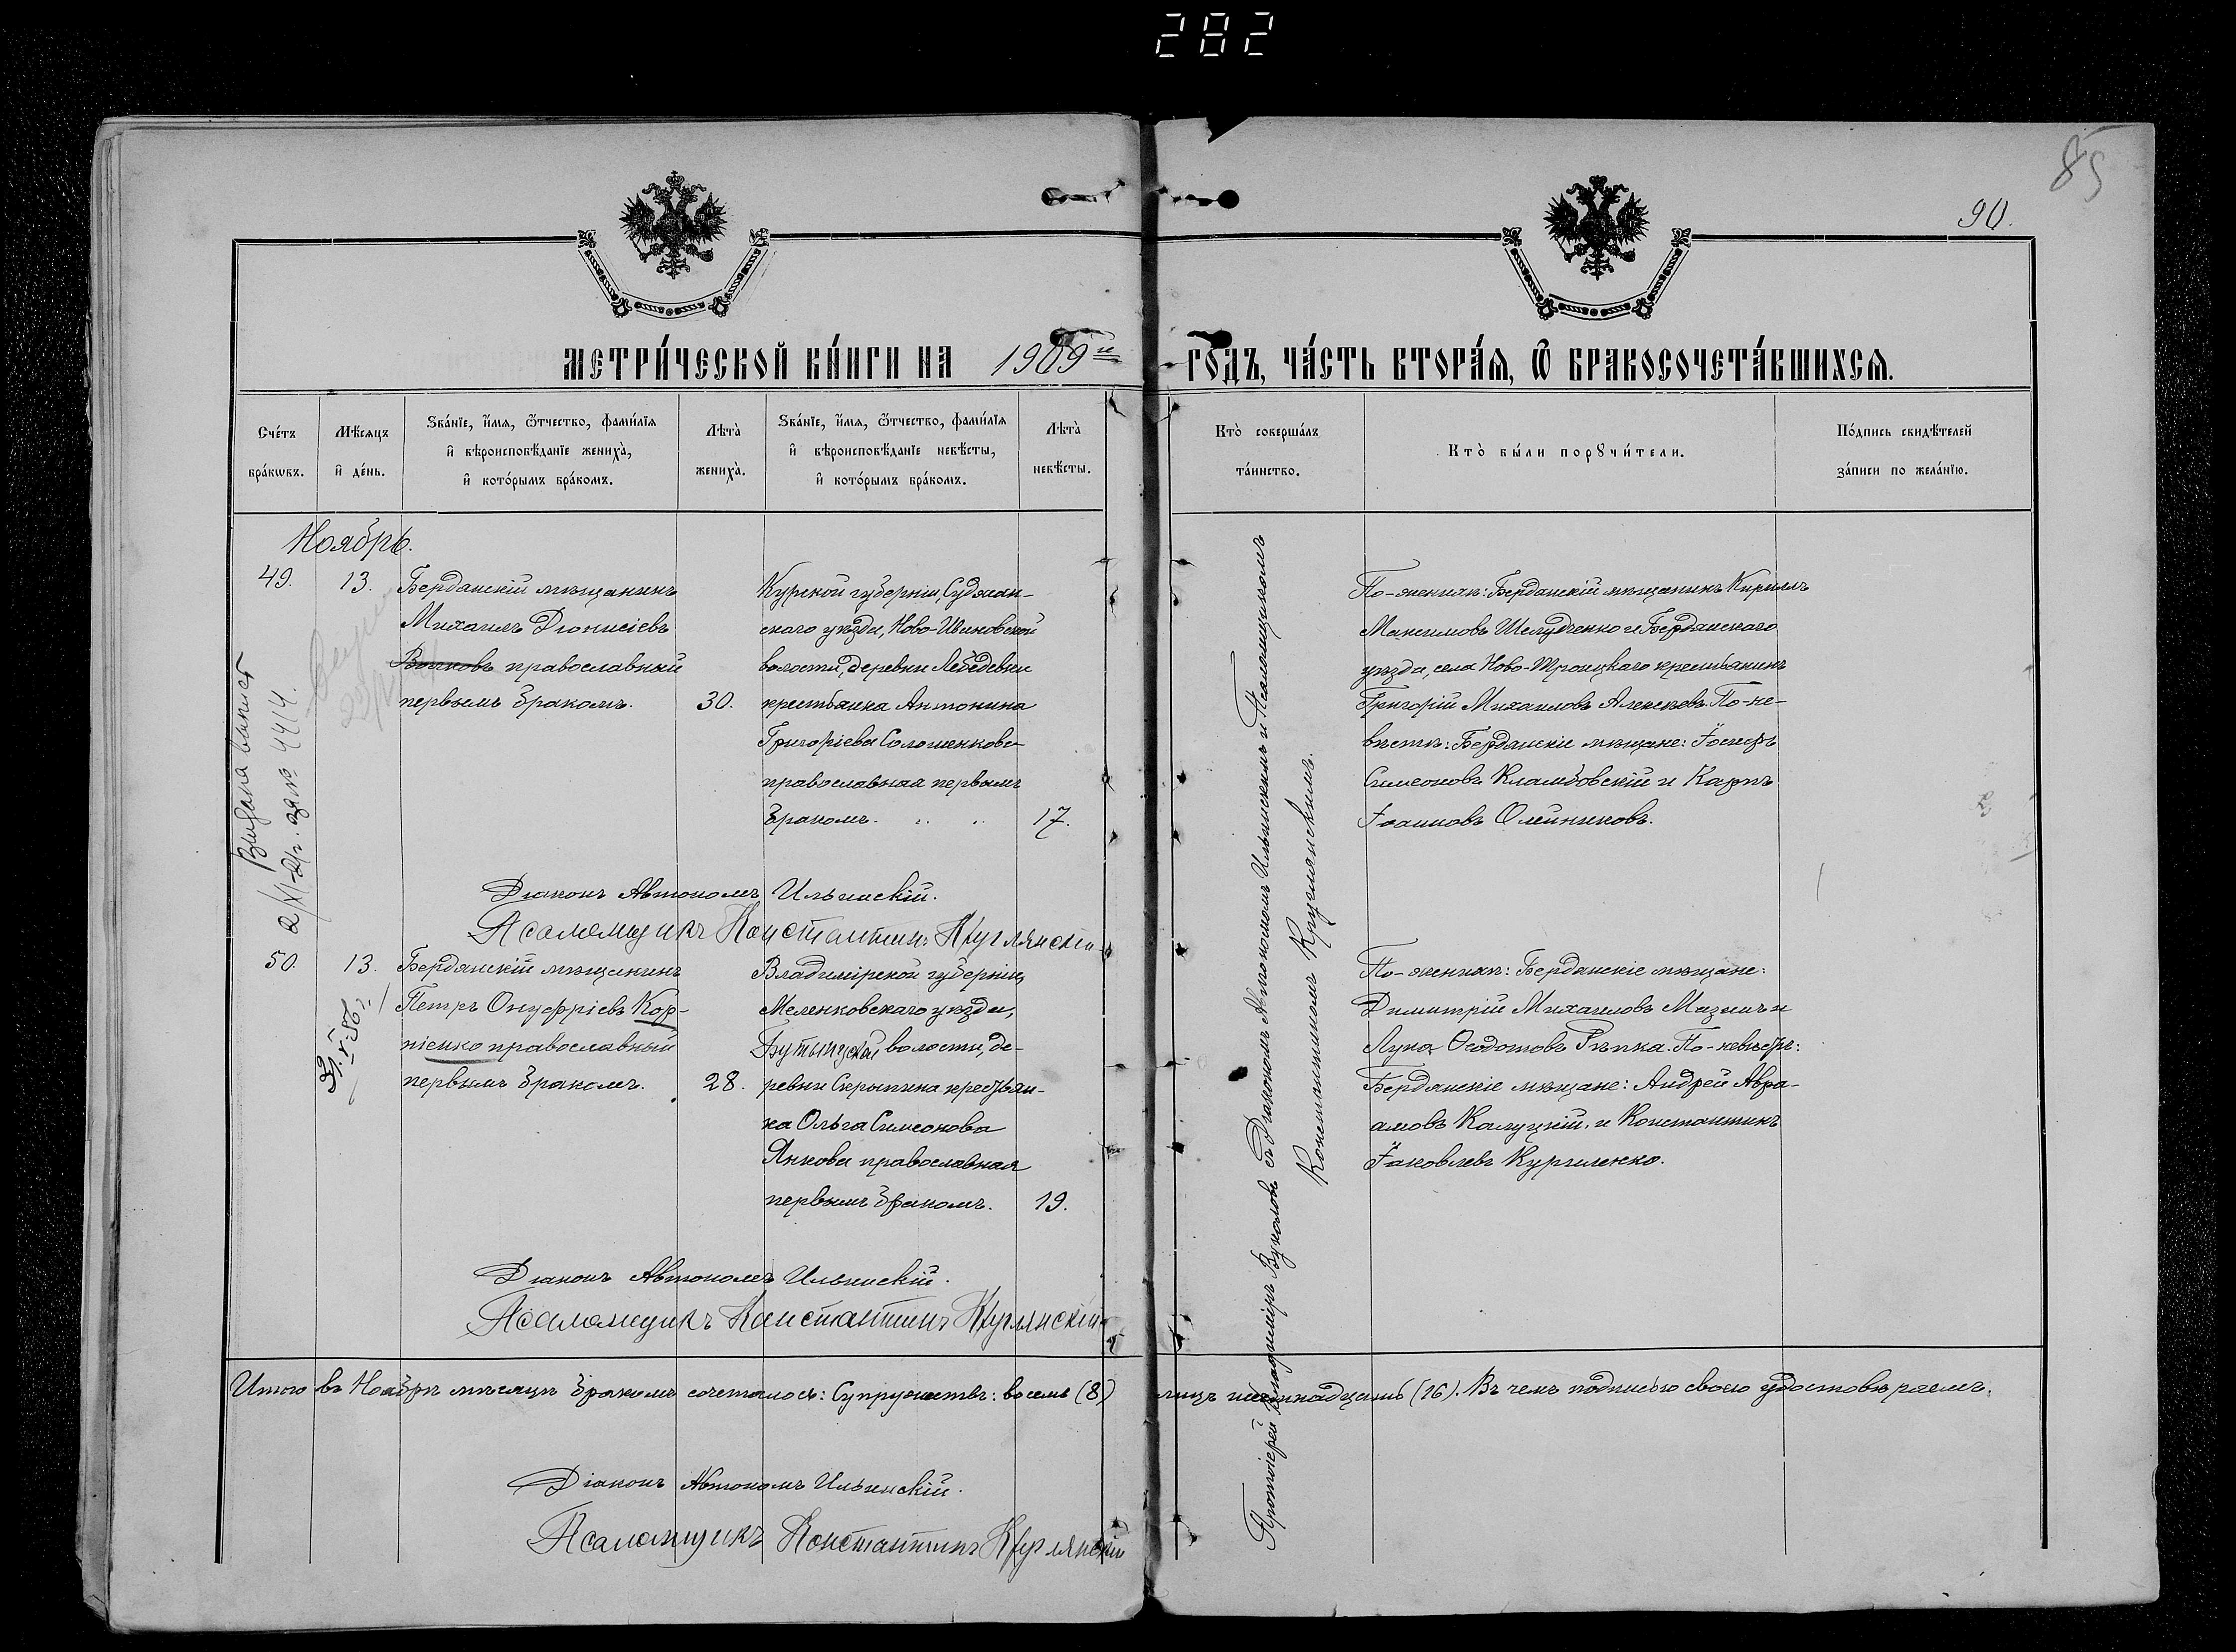 282
85
90.
МЕТРИ́ЧЕСКОЙ КНИ́ГИ НА 1909й ГОДЪ, ЧА́СТЬ ВТОРА́Я, Ѿ БРАКОСОЧЕТА́ВШИХСЯ.
Сче́тъ бра́кѡвъ.
Мѣ́сяцъ и҆ де́нь.
Ѕва́нїе, и҆́мя, ѻ҆́тчество, фами́лїя и҆ вѣроисповѣ́данїе жениха̀, и҆ кото́рымъ бра́комъ.
Лѣта̀ жениха̀.
Ѕва́нїе, и҆́мя, ѻ҆́тчество, фами́лїя и҆ вѣроисповѣ́данїе невѣ́сты, и҆ кото́рымъ бра́комъ.
Лѣта̀ невѣ́сты.
Кто̀ соверша́лъ та́инство.
Кто̀ бы́ли порꙋчи́тели.
По́дпись свидѣ́телей за́писи по жела́нїю.
Ноябрь.
49.
13.
Бердянскій мѣщанинъ
Михаилъ Діонисіевъ
Волковъ православный
первымъ бракомъ.
30.
Курской губерніи, Суджан-
скаго уѣзда, Ново-Ивановской
волости, деревни Лебедевки
крестьянка Антонина
Григоріева Солошенкова
православная первымъ
бракомъ.
17.
По-женихѣ: Бердянскій мѣщанинъ Кириллъ
Максимовъ Шелудченко и Бердянскаго
уѣзда, села Ново-Троицкаго крестьянинъ
Григорій Михаиловъ Алексѣевъ. По-не-
вѣстѣ: Бердянскіе мѣщане: Іосифъ
Симеоновъ Кламбовскій и Карпъ
Іоанновъ Олейниковъ.
Діаконъ Автономъ Ильинскій.
Псаломщикъ Константинъ Круглянскій
50.
13.
Бердянскій мѣщанинъ
Петръ Онуфріевъ Кор-
ніенко православный
первымъ бракомъ.
28.
Владимірской губерніи,
Меленковскаго уѣзда,
Бутылицкой волости, де-
ревни Скрыпина крестьян-
ка Ольга Симеонова
Янкова православная
первымъ бракомъ.
19.
По-женихѣ: Бердянскіе мѣщане:
Димитрій Михаиловъ Мазинъ и
Лука Ѳеодотовъ Рѣпка. По-невѣстѣ:
Бердянскіе мѣщане: Андрей Авра-
амовъ Калуцкій, и Константинъ
Іаковлевъ Кургиленко.
Діаконъ Автономъ Ильинскій.
Псаломщикъ Константинъ Круглянскій
Протоіерей Владиміръ Вуколовъ съ Діакономъ Автономомъ Ильинскимъ и Псаломщикомъ
Константиномъ Круглянскимъ.
Видана випис
Итого въ Ноябрѣ мѣсяцѣ бракомъ сочеталось: Супружествъ: восемь (8) лицъ шестнадцать (16). Въ чемъ подписью своею удостовѣряемъ.
Діаконъ Автономъ Ильинскій.
Псаломщикъ Константинъ Круглянскій